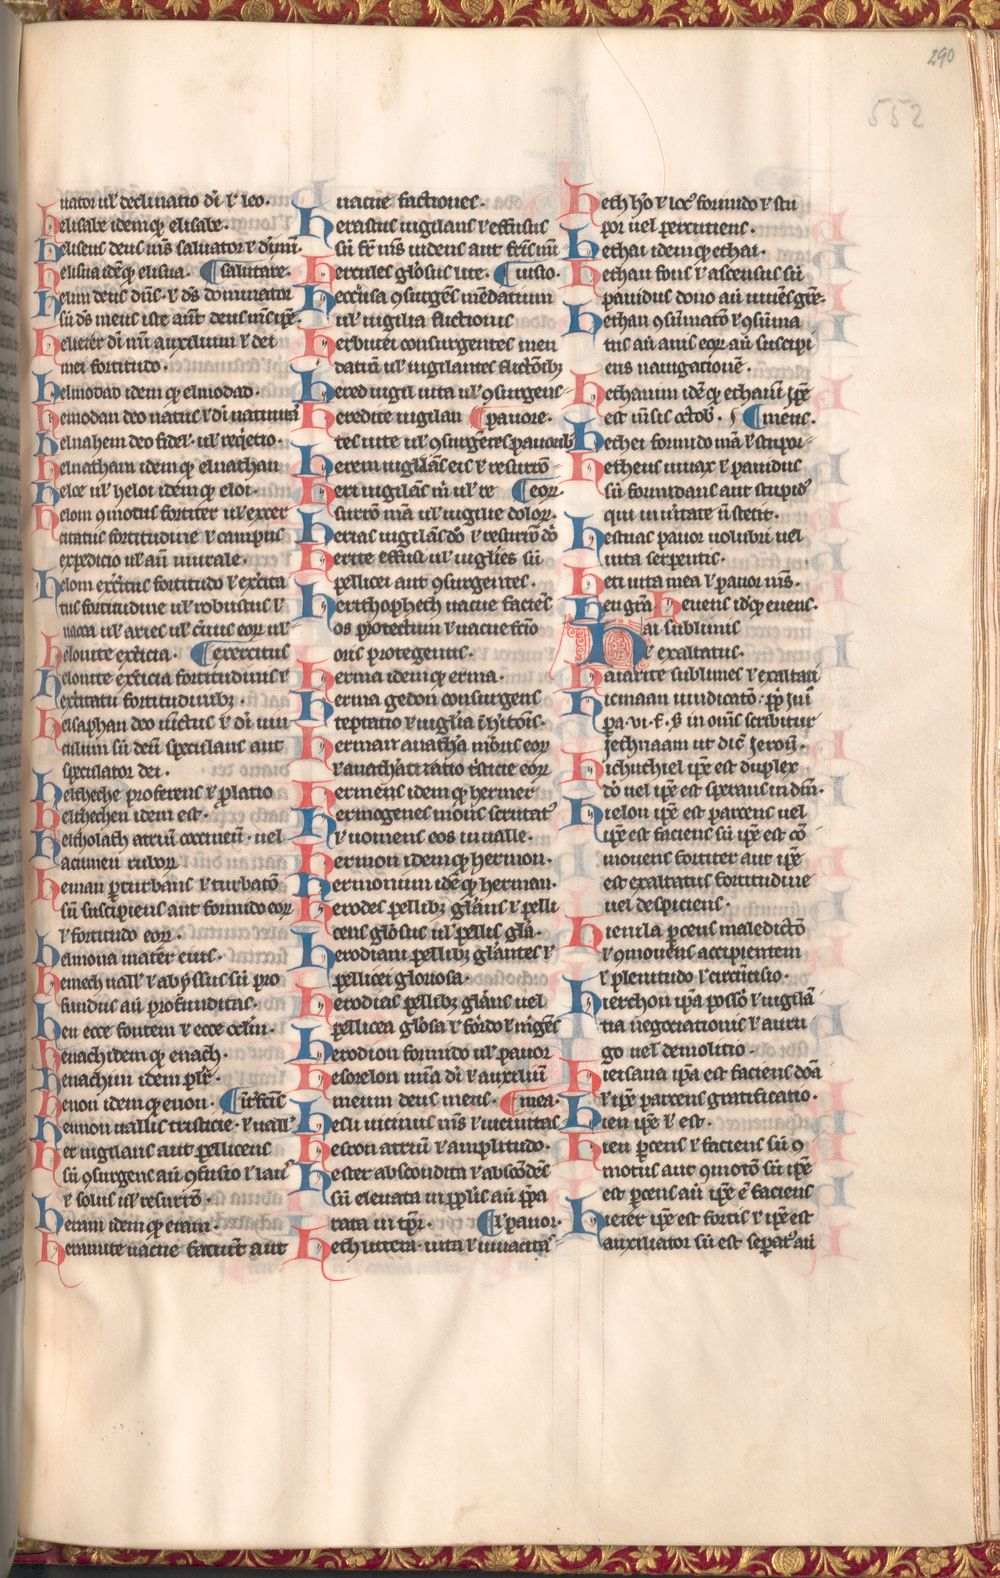 290
552
nator ul' declinatio di ⁊ leo.
Helisabe idem qͥ elisabe.
Heliseus deus mͥs saluator ⁊ dͥi mͥ
Helisua idēqͥ elisua. ¶ salutare.
Helim deus dn̄s. ⁊ ds̄ dominator
sū ds̄ meus iste aūt deus mͥs ip̄e.
Heliezer di mī auxilium ⁊ dei
mei fortitudo.
Helmodad idem qͥ elmodad.
Helmodan deo natus ⁊ di natiuitas
Helnahem deo fidel'. ul'
Helnatham idem qͥ elnathan
Heloe ul' heloi idem qͥ eloi.
Helom ꝯmotus fortiter ul' exer
citatus fortitudine ⁊ campus
expedicio ul' aū murale.
Helom exc̄itus fortitudo ⁊ exc̄ita
tus fortitudine ul' robustus ⁊
uacca ul' aries ul' eoꝝ ul'
Helonite exc̄icia. ¶ exercitus
Helonite exc̄icia fortitudinis ⁊
exc̄itatū fortitudinibꝫ.
Helsaphan deo ⁊ di
culum sū deū speculans aut
speculator dei.
Heltheche proferens ⁊ prolatio
Helthechen idem est.
Helcholach atriū coccineū. uel
acumen ruboꝝ
Heman ꝑturbans ⁊ turbatō
sū suscipiens aut formido eoꝝ
⁊ fortitudo eoꝝ.
Hemona mater eius.
Hemech uall' ⁊ abyssus sū pro
fundus aū profunditas.
Hen ecce fontem ⁊ ecce oclm̄.
Henach idem qͥ enach.
Henachim idem plr̄.
Henon idem qͥ enon.
Hennon uallis tristicie. ⁊ uall'
Her uigilans aut pellicens
sū ꝯsurgens aū ꝯfusio ⁊
⁊ solus ul' resurr̄o.
Heram idem qͥ eram.
Heramite uacue faciūt aut
uacue factiones.
Herastus uigilans ⁊ effusus
sū fr̄ mͥs uidens aut
Hercules glōsus lite. ¶ uisio.
Hercusa ꝯsurgēs mēdatium
ul' uigilia fluctionis
Herbutei consurgentes men
datiū ul' uigilantes fluctōibꝫ
Hered uigil uita ul' ꝯsurgens
Heredite uigilan ¶ pauore.
tes uite ul' ꝯsurgētes pauoribꝫ
Herem uigilās eis ⁊ resurr̄o
Heri uigilās m̄ ul' te ¶ eoꝝ.
surr̄o mā ul' uigilie doloꝝ.
Herias uigilās do ⁊ resurr̄o dō
Herite effusi ul' uigiles sū
pellicei aut ꝯsurgentes.
Herthophech uacue facies
os protectum ⁊ uacue
oris protegentis.
Herma idem qͥ erma.
Herma gedon consurgens
teptatio ⁊ uigilia
Herman anacha eoꝝ
⁊ anathematizatio tristicie eoꝝ
Hermens idem qͥ hermer
Hermogenes mons scrutat'
⁊ uomens eos in ualle.
Hermon idem qͥ hermon.
Hermonium idē qͥ herman.
Herodes pellibꝫ glāns ⁊ pelli
ceus glōsus ul' pellis glā.
Herodiani pellibꝫ glāntes ⁊
pellicei gloriosa.
Herodias pellibꝫ glāns uel
pellicea glōsa ⁊ fōrdo ⁊ nigēs
Herodion formido ul' pauor
Hesorelon mīa di ⁊ auxiliū
meum deus meus. ¶ mea.
Hesli uicinus mͥs ⁊ uicinitas
Hesron atriū ⁊ amplitudo.
Hester abscondita ⁊ abscōdēs
sū eleuata in pplis aū ppa
rata in tpr̄. ¶ ⁊ pauor.
Heth littera. uita ⁊ uiuacitas
Heth ho ⁊ formido ⁊ stu
por uel percutiens.
Hethai idem qͥ ethai.
Hethan fons ⁊ ascensus sū
pauidus dono aū
Hethan ꝯsūmatō ⁊ ꝯsūma
tus aū auis eoꝝ aū suscipi
ens nauigationē.
Hethanim idē qͥ ethanī ip̄e
est octob. ¶ meus.
Hethei formido mā ⁊ stupor
Hetheus uiuax ⁊ pauidus
sū formidans aut stupid'
qui in uītate ū stetit.
Hestuas pauor uolubri uel
uita serpentis.
Heti uita mea ⁊ pauor mͥs.
Heu grā Heuens id qͥ euens.
Hai sublimis
⁊ exaltatus.
Haiarite sublimes ⁊ exaltati
Hicmaan uindicatō. pp
pa. vi. f. s in omīs scribitur
Jechnaam ut dic̄ Jeroī.
Hichuchiel ip̄e est duplex
dō uel ip̄e est sperans in dm̄.
Hielon ip̄e est parcens uel
ip̄e est faciens sū ip̄e est cō
mouens fortiter aut ip̄e
est exaltatus fortitudine
uel despiciens.
Hiemla ꝑcens maledictō
⁊ ꝯmouens accipientem
⁊ plenitudo ⁊ circūcisio.
Hierchon ip̄a posso ⁊ uigilā
tia negociationis ⁊ auru
go uel demolitio.
Hiersana ip̄a est faciens dona
⁊ ip̄e parcens gratificatio.
Hieu ip̄e ⁊ est.
Hieu ꝑcens ⁊ faciens sū ꝯ
motus aut ꝯmotō sū ip̄e
est ꝑcens aū ip̄e ē faciens
Hiezer ip̄e est fortis ⁊ ip̄e est
auxiliator sū est seꝑat' aū